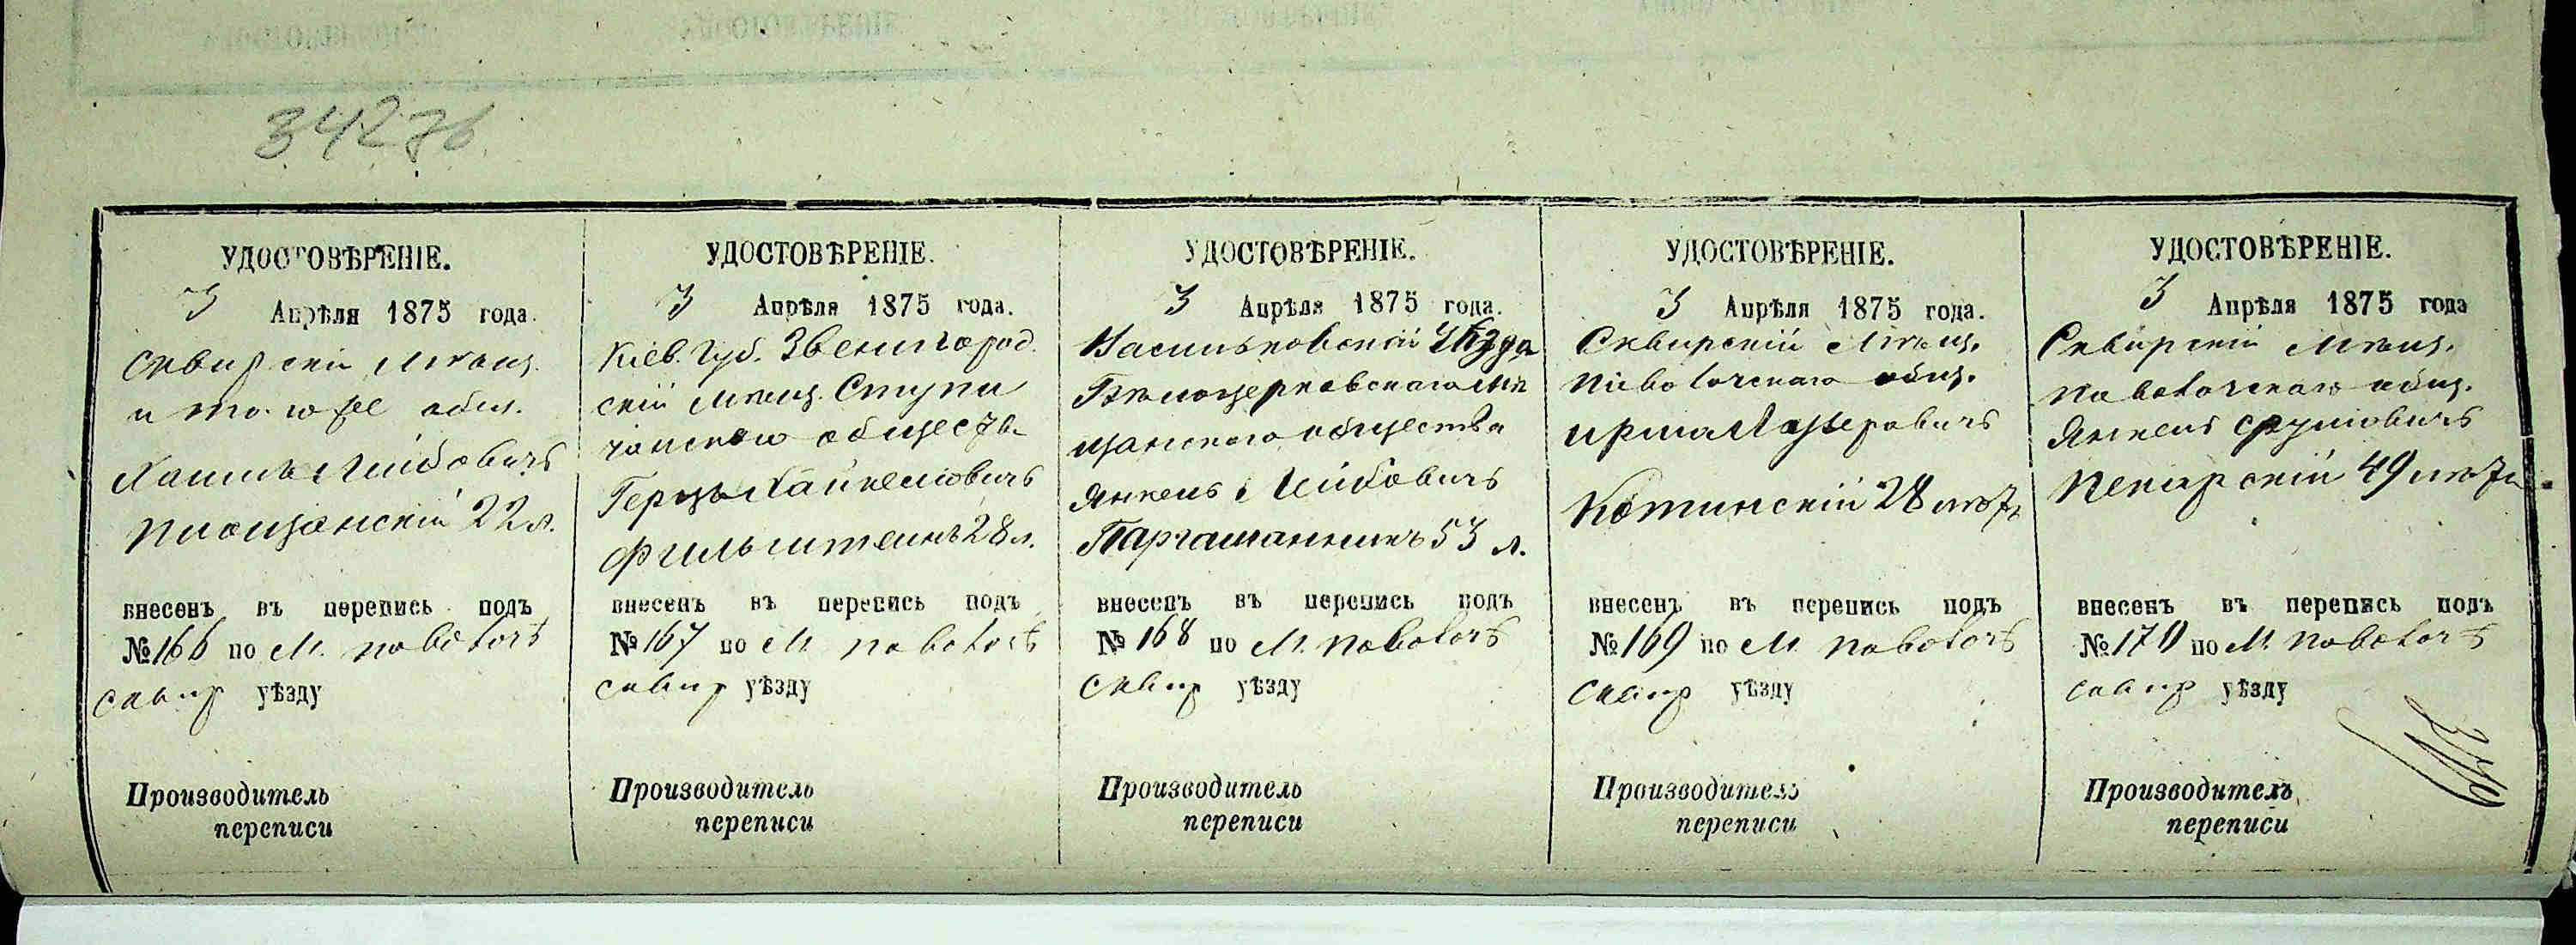 34276
УДОСТОВѢРЕНІЕ.
3 Апрѣля 1875 года.
Сквирскій мѣщ.
и то-го же общ.
Хаимъ Лейбовичъ
Площанскій 22 л.
внесенъ въ перепись подъ
№166 по М. Паволочѣ
Сквир уѣзду
Производитель
переписи
УДОСТОВѢРЕНІЕ.
3 Апрѣля 1875 года.
Кіев. Губ. Звенигород.
скій мѣщ.
общества
Герцъ
Фильштеинъ 28 л.
внесенъ въ перепись подъ
№167 по М. Паволочѣ
Сквир уѣзду
Производитель
переписи
УДОСТОВѢРЕНІЕ.
3 Апрѣля 1875 года.
Васильковскій Уѣзда
Бѣлоцерковскаго мѣ
щанскаго общества
Янкель Лейбовичъ
53 л.
внесенъ въ перепись подъ
№168 по М. Паволочѣ
Сквир уѣзду
Производитель
переписи
УДОСТОВѢРЕНІЕ.
3 Апрѣля 1875 года.
Сквирскій Мѣщ.
Паволочскаго общ.
Лазеровичъ
Котинскій 28 лѣтъ
внесенъ въ перепись подъ
№169 по М. Паволочѣ
Сквир уѣзду
Производитель
переписи
УДОСТОВѢРЕНІЕ.
3 Апрѣля 1875 года
Сквирскій Мѣщ.
Паволочскаго общ.
Янкель Сруловичъ
Пекарскій 49 лѣтъ
внесенъ въ перепись подъ
№170 по М. Паволочѣ
Сквир уѣзду
Производитель
переписи